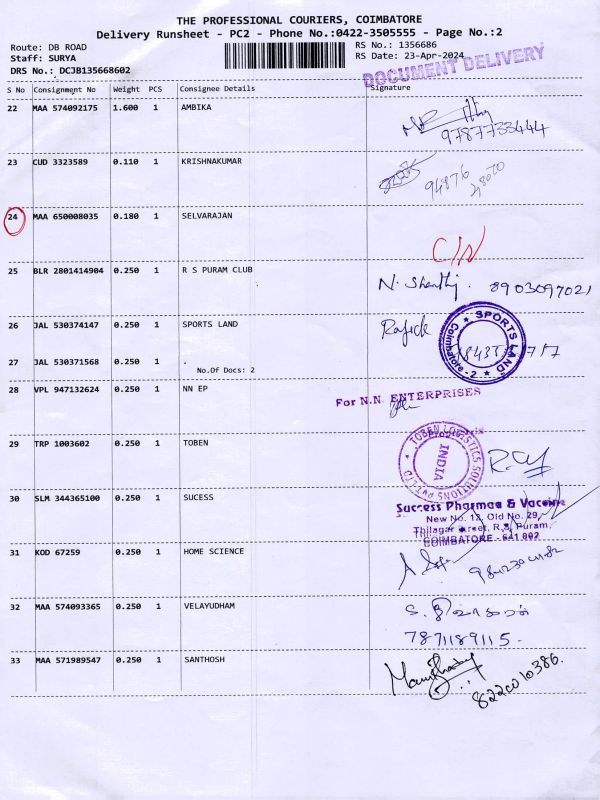 THE PROFESSIONAL COURIERS, COIMBATORE
Delivery Runsheet - PC2 - Phone No.:0422-3505555 - Page No.:2
Route: DB ROAD
RS No.: 1356686
Staff: SURYA
RS Date: 23-Apr-2024
DRS No.: DCJB135668602
DOCUMENT DELIVERY
S No Consignment No Weight PCS Consignee Details Signature
22 MAA 574092175 1.600 1 AMBIKA
9787733444
23 CUD 3323589 0.110 1 KRISHNAKUMAR
94876
48020
24 MAA 650008035 0.180 1 SELVARAJAN
C/N
25 BLR 2801414904 0.250 1 R S PURAM CLUB
N. Shanthi. 8903097021
26 JAL 530374147 0.250 1 SPORTS LAND
Rafeek
SPORTS LAND
Coimbatore - 2
27 JAL 530371568 0.250 1 .
No.Of Docs: 2
28 VPL 947132624 0.250 1 NN EP
For N.N. ENTERPRISES
29 TRP 1003602 0.250 1 TOBEN
TOBEN LOGISTICS SOLUTIONS PVT LTD
INDIA
30 SLM 344365100 0.250 1 SUCESS
Success Pharmaa & Vaccine
New No. 12, Old No. 29,
Thilagar street, R.S. Puram,
COIMBATORE - 641 002
31 KOD 67259 0.250 1 HOME SCIENCE
32 MAA 574093365 0.250 1 VELAYUDHAM
7871189115.
33 MAA 571989547 0.250 1 SANTHOSH
8220010386.